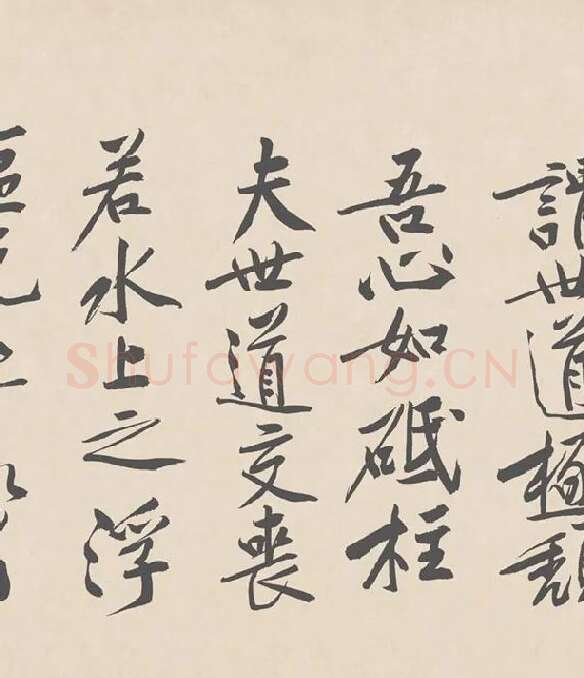 謂世道極頽
吾心如砥柱
夫世道交喪
若水上之浮
漚既
Shufawang.CN